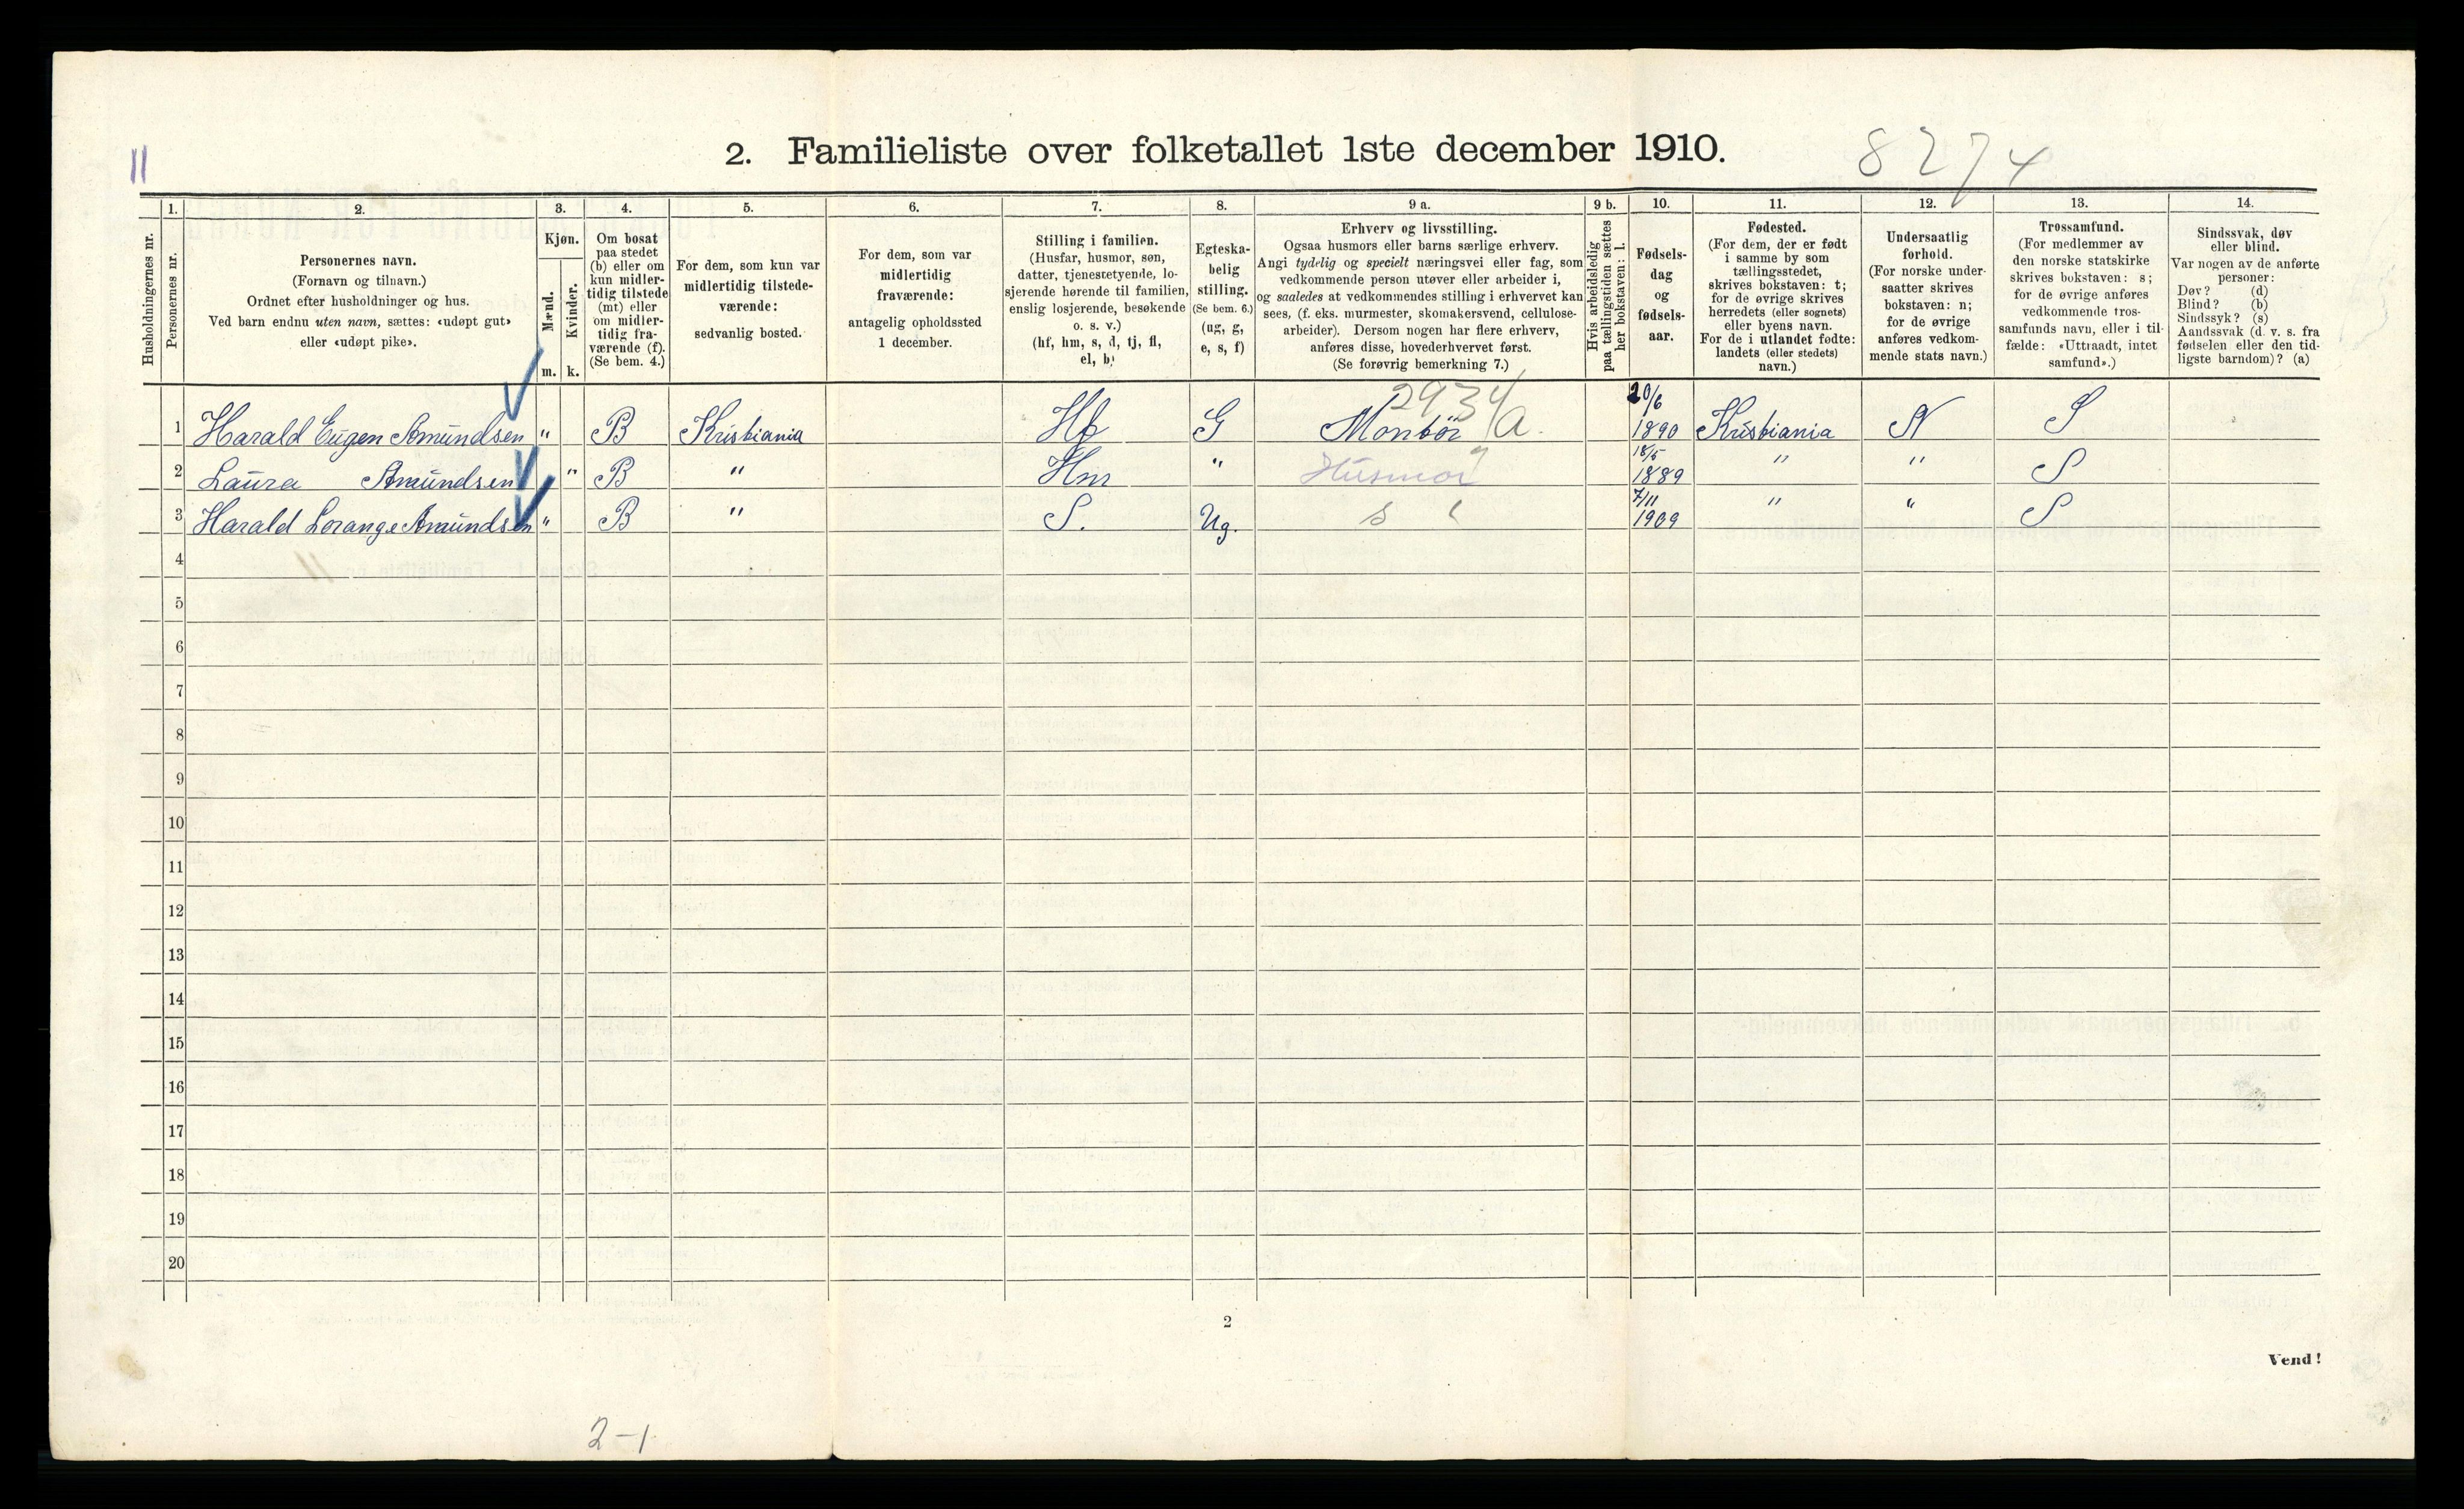 11
2. Familieliste over folketallet 1ste december 1910.
8274
1. 2. 3. 4. 5. 6. 7. 8. 9 a. 9 b. 10. 11. 12. 13. 14.
Husholdningernes nr.
Personernes nr.
Personernes navn.
(Fornavn og tilnavn.)
Ordnet efter husholdninger og hus.
Ved barn endnu uten navn, sættes: «udøpt gut»
eller «udøpt pike».
Kjøn.
Mænd.
Kvinder.
m. k.
Om bosat
paa stedet
(b) eller om
kun midler-
tidig tilstede
(mt) eller
om midler-
tidig fra-
værende (f).
(Se bem. 4.)
For dem, som kun var
midlertidig tilstede-
værende:
sedvanlig bosted.
For dem, som var
midlertidig
fraværende:
antagelig opholdssted
1 december.
Stilling i familien.
(Husfar, husmor, søn,
datter, tjenestetyende, lo-
sjerende hørende til familien,
enslig losjerende, besøkende
o. s. v.)
(hf, hm, s, d, tj, fl,
el, b)
Egteska-
belig
stilling.
(Se bem. 6.)
(ug, g,
e, s, f)
Erhverv og livsstilling.
Ogsaa husmors eller barns særlige erhverv.
Angi tydelig og specielt næringsvei eller fag, som
vedkommende person utøver eller arbeider i,
og saaledes at vedkommendes stilling i erhvervet kan
sees, (f. eks. murmester, skomakersvend, cellulose-
arbeider). Dersom nogen har flere erhverv,
anføres disse, hovederhvervet først.
(Se forøvrig bemerkning 7.)
Hvis arbeidsledig
paa tællingstiden sættes
her bokstaven: l.
Fødsels-
dag
og
fødsels-
aar.
Fødested.
(For dem, der er født
i samme by som
tællingsstedet,
skrives bokstaven: t;
for de øvrige skrives
herredets (eller sognets)
eller byens navn.
For de i utlandet fødte:
landets (eller stedets)
navn.)
Undersaatlig
forhold.
(For norske under-
saatter skrives
bokstaven: n;
for de øvrige
anføres vedkom-
mende stats navn.)
Trossamfund.
(For medlemmer av
den norske statskirke
skrives bokstaven: s;
for de øvrige anføres
vedkommende tros-
samfunds navn, eller i til-
fælde: «Uttraadt, intet
samfund».)
Sindssvak, døv
eller blind.
Var nogen av de anførte
personer:
Døv? (d)
Blind? (b)
Sindssyk? (s)
Aandssvak (d. v. s. fra
fødselen eller den tid-
ligste barndom)? (a)
2934 20/6
1 Harald Eugen Amundsen " B Kristiania Hf G Montör a. 1890 Kristiania N S
18/5
2 Laura Amundsen " B " Hm " Husmor 1889 " " S
7/11
3 Harald Lorange Amundsen " B " S. Ug. s 1909 " " S
4
5
6
7
8
9
10
11
12
13
14
15
16
17
18
19
20
2
Vend!
2-1